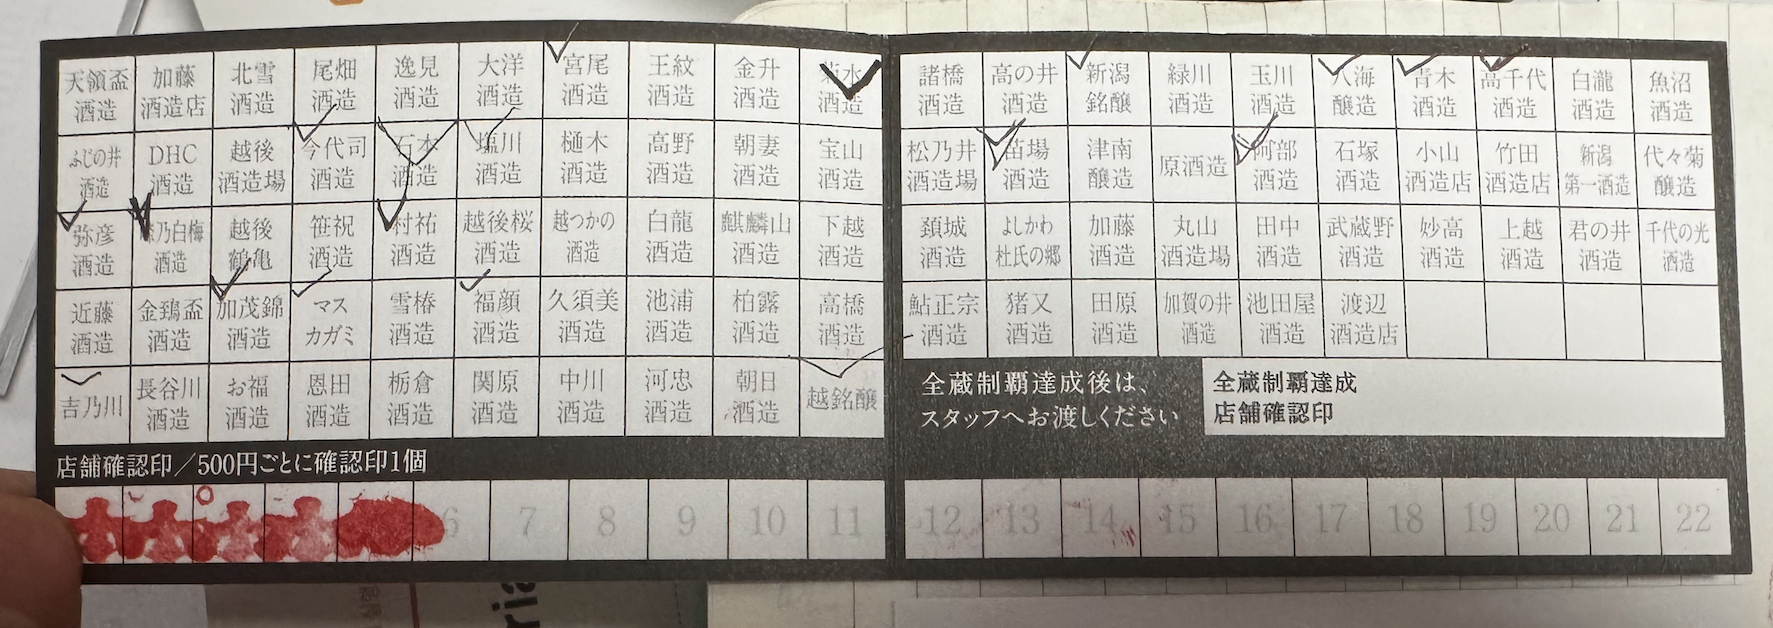 天領盃
酒造
加藤
酒造店
北雪
酒造
尾畑
酒造
逸見
酒造
大洋
酒造
宮尾
酒造
王紋
酒造
金升
酒造
菊水
酒造
ふじの井
酒造
DHC
酒造
越後
酒造場
今代司
酒造
石本
酒造
塩川
酒造
樋木
酒造
高野
酒造
朝妻
酒造
宝山
酒造
弥彦
酒造
乃白梅
酒造
越後
鶴亀
笹祝
酒造
村祐
酒造
越後桜
酒造
越つかの
酒造
白龍
酒造
麒麟山
酒造
下越
酒造
近藤
酒造
金鵄盃
酒造
加茂錦
酒造
マス
カガミ
雪椿
酒造
福顔
酒造
久須美
酒造
池浦
酒造
柏露
酒造
高橋
酒造
吉乃川
長谷川
酒造
お福
酒造
恩田
酒造
栃倉
酒造
関原
酒造
中川
酒造
河忠
酒造
朝日
酒造
越銘醸
店舗確認印/500円ごとに確認印1個
6 7 8 9 10 11
諸橋
酒造
高の井
酒造
新潟
銘醸
緑川
酒造
玉川
酒造
八海
醸造
青木
酒造
高千代
酒造
白瀧
酒造
魚沼
酒造
松乃井
酒造場
苗場
酒造
津南
醸造
原酒造
阿部
酒造
石塚
酒造
小山
酒造店
竹田
酒造店
新潟
第一酒造
代々菊
醸造
頚城
酒造
よしかわ
杜氏の郷
加藤
酒造
丸山
酒造場
田中
酒造
武蔵野
酒造
妙高
酒造
上越
酒造
君の井
酒造
千代の光
酒造
鮎正宗
酒造
猪又
酒造
田原
酒造
加賀の井
酒造
池田屋
酒造
渡辺
酒造店
全蔵制覇達成後は、
スタッフへお渡しください
全蔵制覇達成
店舗確認印
12 13 14 15 16 17 18 19 20 21 22